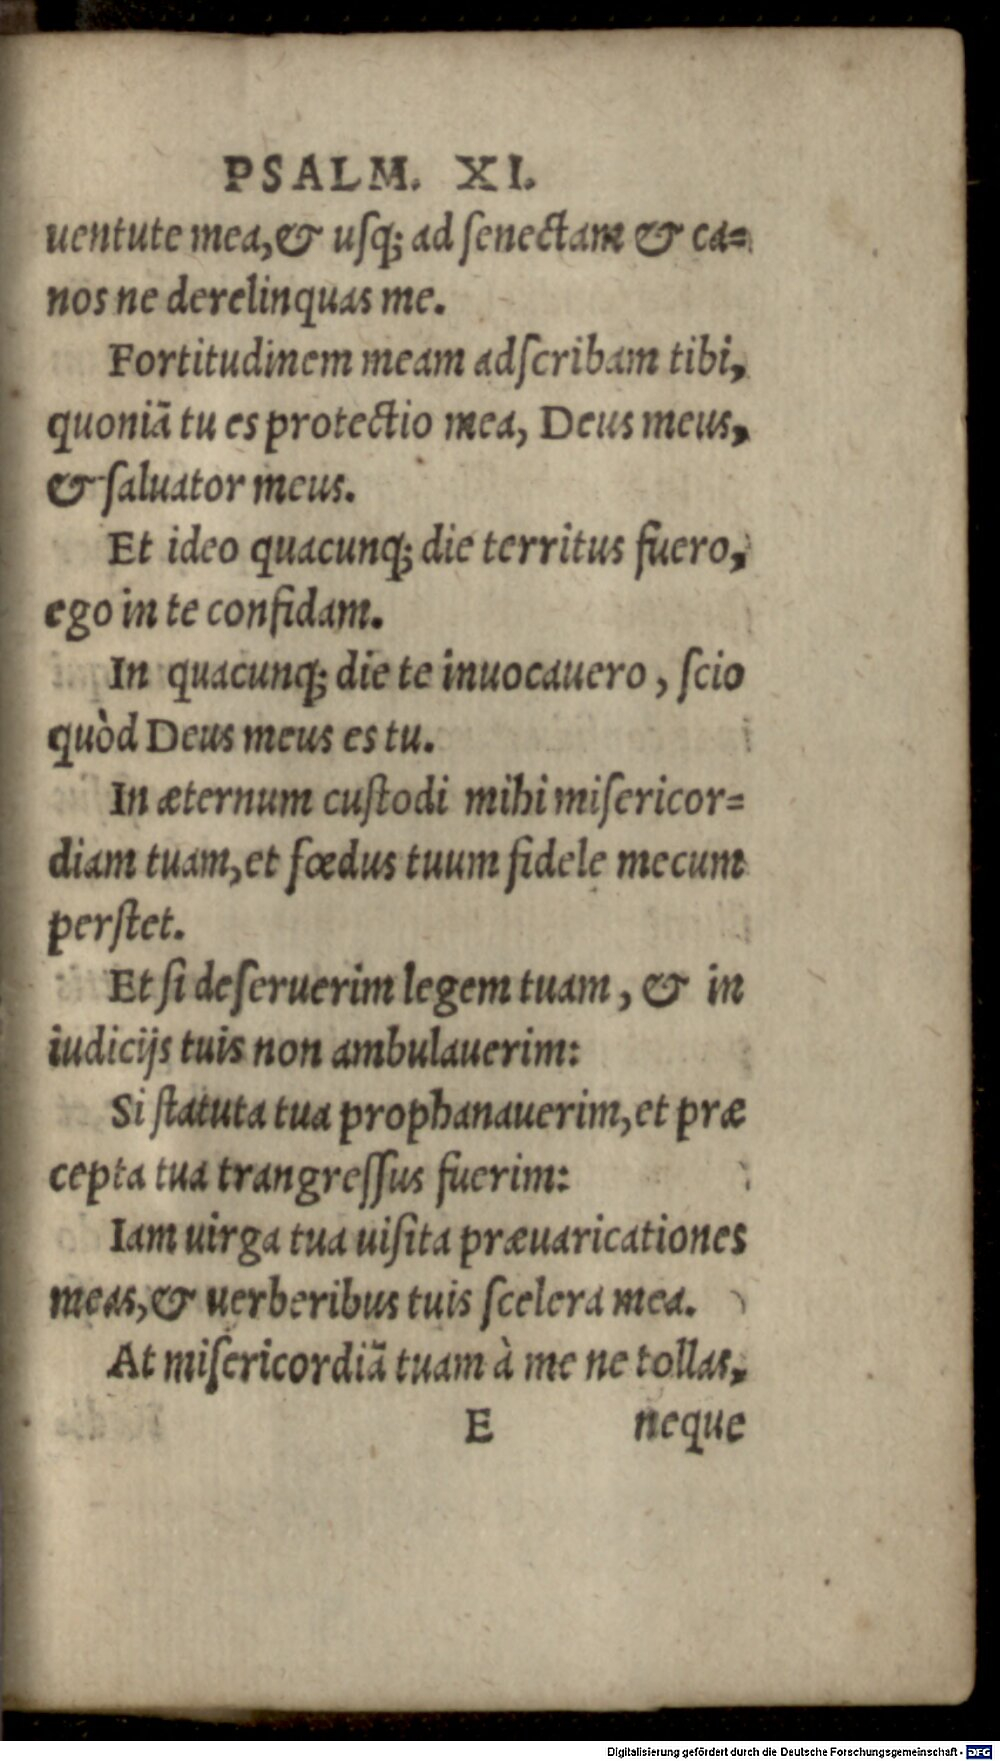 PSALM. XI.
uentute mea, & uſq; ad ſenectam & ca=
nos ne derelinquas me.
Fortitudinem meam adſcribam tibi,
quoniā tu es protectio mea, Deus meus,
& ſaluator meus.
Et ideo quacunq; die territus fuero,
ego in te confidam.
In quacunq; die te inuocauero, ſcio
quòd Deus meus es tu.
In æternum cuſtodi mihi miſericor=
diam tuam, et fœdus tuum fidele mecum
perſtet.
Et ſi deſeruerim legem tuam, & in
iudicijs tuis non ambulauerim:
Si ſtatuta tua prophanauerim, et præ
cepta tua trangreſſus fuerim:
Iam uirga tua uiſita præuaricationes
meas, & uerberibus tuis ſcelera mea.
At miſericordiā tuam à me ne tollas,
E neque
Digitalisierung gefördert durch die Deutsche Forschungsgemeinschaft - DFG